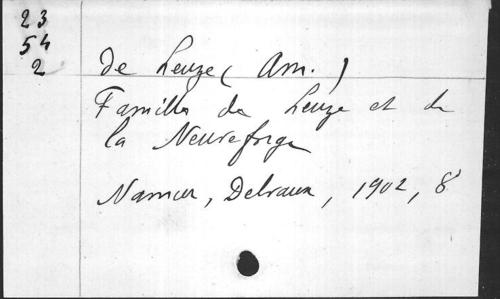 23
54
2
de Leuze (Am.)
Familles de Leuze et de
la Neuveforge
Namur, Delvaux, 1902, 8°